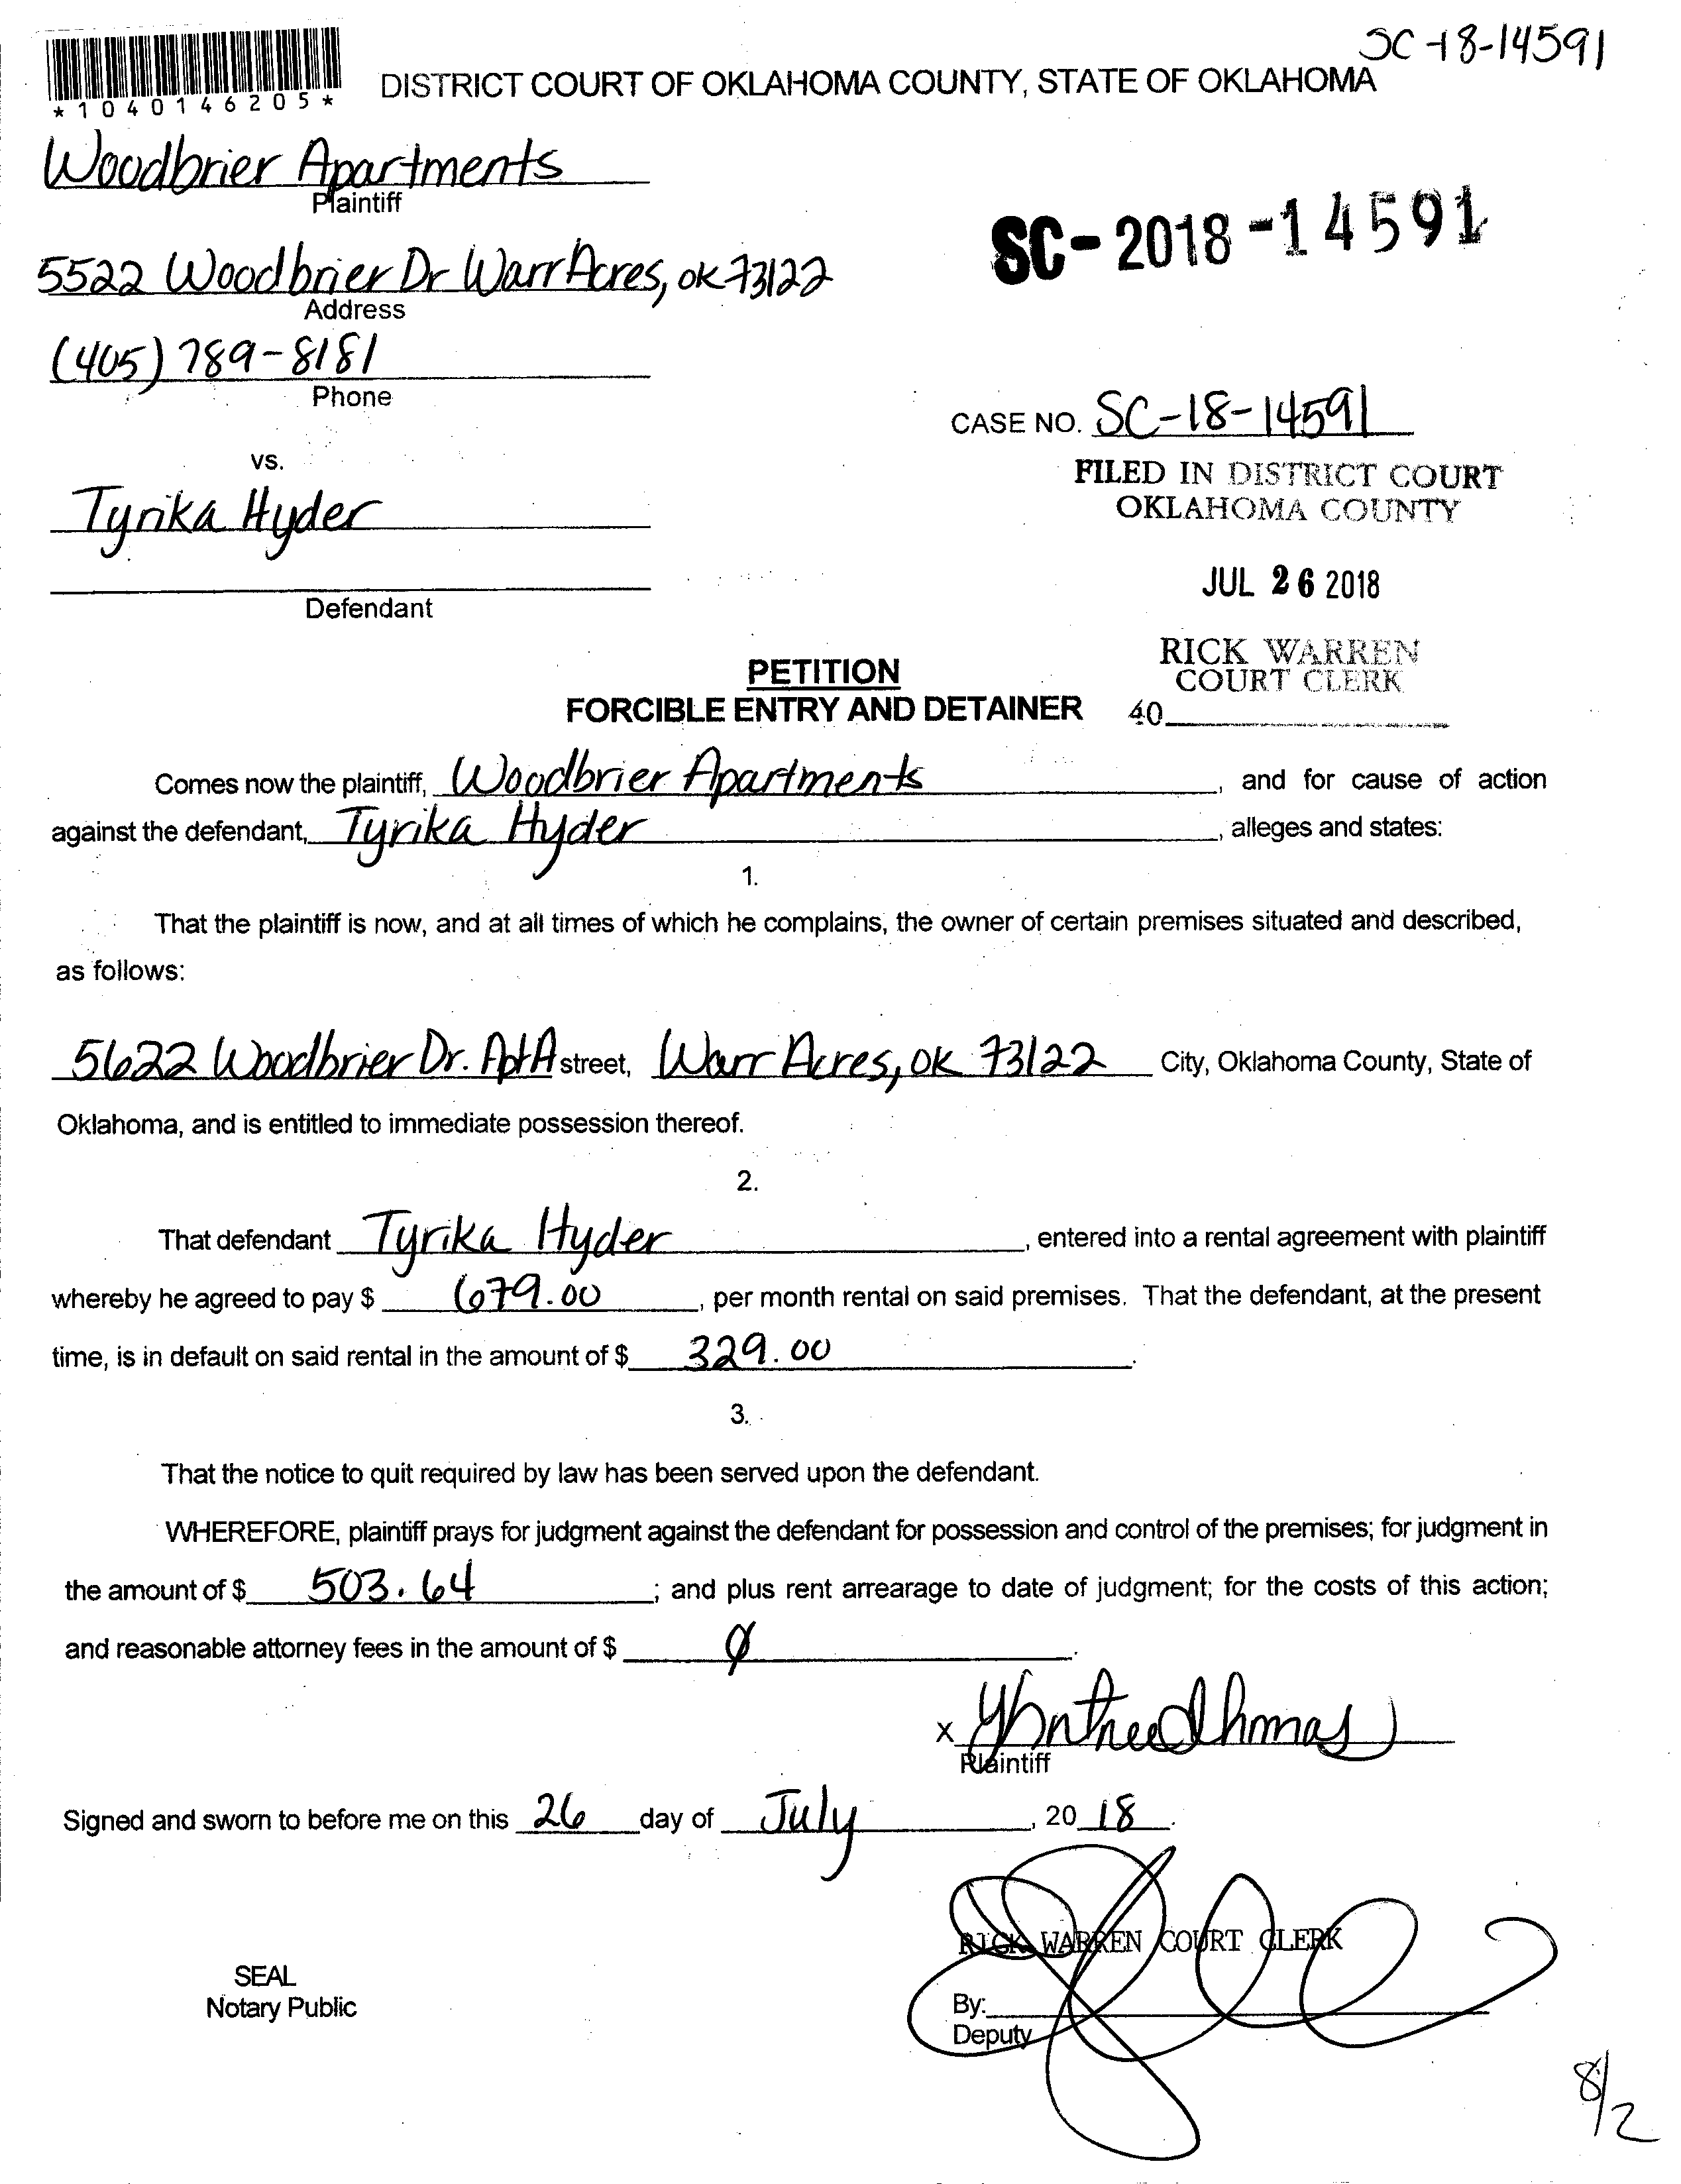 SC-18-14591
*1040146205*
DISTRICT COURT OF OKLAHOMA COUNTY, STATE OF OKLAHOMA
Woodbrier Apartments
Plaintiff
SC-2018-14591
5522 Woodbrier Dr Warr Acres, OK 73122
Address
(405) 789-8181
Phone
CASE NO. SC-18-14591
vs.
FILED IN DISTRICT COURT
OKLAHOMA COUNTY
Tyrika Hyder
JUL 26 2018
Defendant
RICK WARREN
COURT CLERK
40
PETITION
FORCIBLE ENTRY AND DETAINER
Comes now the plaintiff, Woodbrier Apartments, and for cause of action
against the defendant, Tyrika Hyder, alleges and states:
1.
That the plaintiff is now, and at all times of which he complains, the owner of certain premises situated and described,
as follows:
5622 Woodbrier Dr. Apt A street, Warr Acres, OK 73122 City, Oklahoma County, State of
Oklahoma, and is entitled to immediate possession thereof.
2.
That defendant Tyrika Hyder, entered into a rental agreement with plaintiff
whereby he agreed to pay $ 679.00, per month rental on said premises. That the defendant, at the present
time, is in default on said rental in the amount of $ 329.00.
3.
That the notice to quit required by law has been served upon the defendant.
WHEREFORE, plaintiff prays for judgment against the defendant for possession and control of the premises; for judgment in
the amount of $ 503.64; and plus rent arrearage to date of judgment; for the costs of this action;
and reasonable attorney fees in the amount of $ 0.
X
Plaintiff
Signed and sworn to before me on this 26 day of July, 20 18.
RICK WARREN COURT CLERK
SEAL
Notary Public
By:
Deputy
8/2